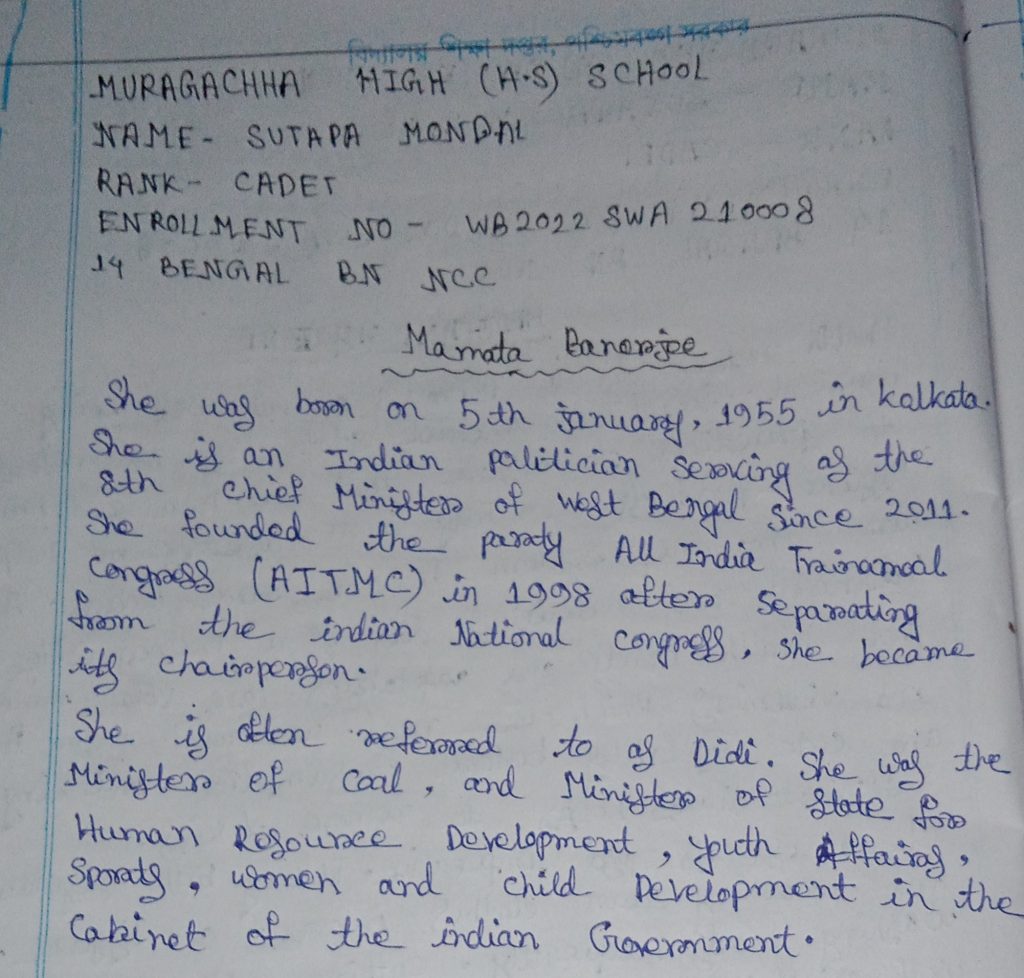 বিদ্যালয় শিক্ষা দপ্তর, পশ্চিমবঙ্গ সরকার
MURAGACHHA HIGH (H.S) SCHOOL
NAME- SUTAPA MONDAL
RANK- CADET
ENROLLMENT NO - WB2022 SWA 210008
14 BENGAL BN NCC
Mamata Banerjee
She was born on 5th january, 1955 in kalkata.
She is an Indian palitician serving as the
8th Chief Minister of west Bengal since 2011.
She founded the party All India Trainamoal
Congress (AITMC) in 1998 after separating
from the indian National congress, she became
its chairperson.
She is often referred to as Didi. She was the
Minister of Coal, and Minister of State for
Human Resource Development, youth Affairs,
Sports, women and child Development in the
Cabinet of the indian Government.